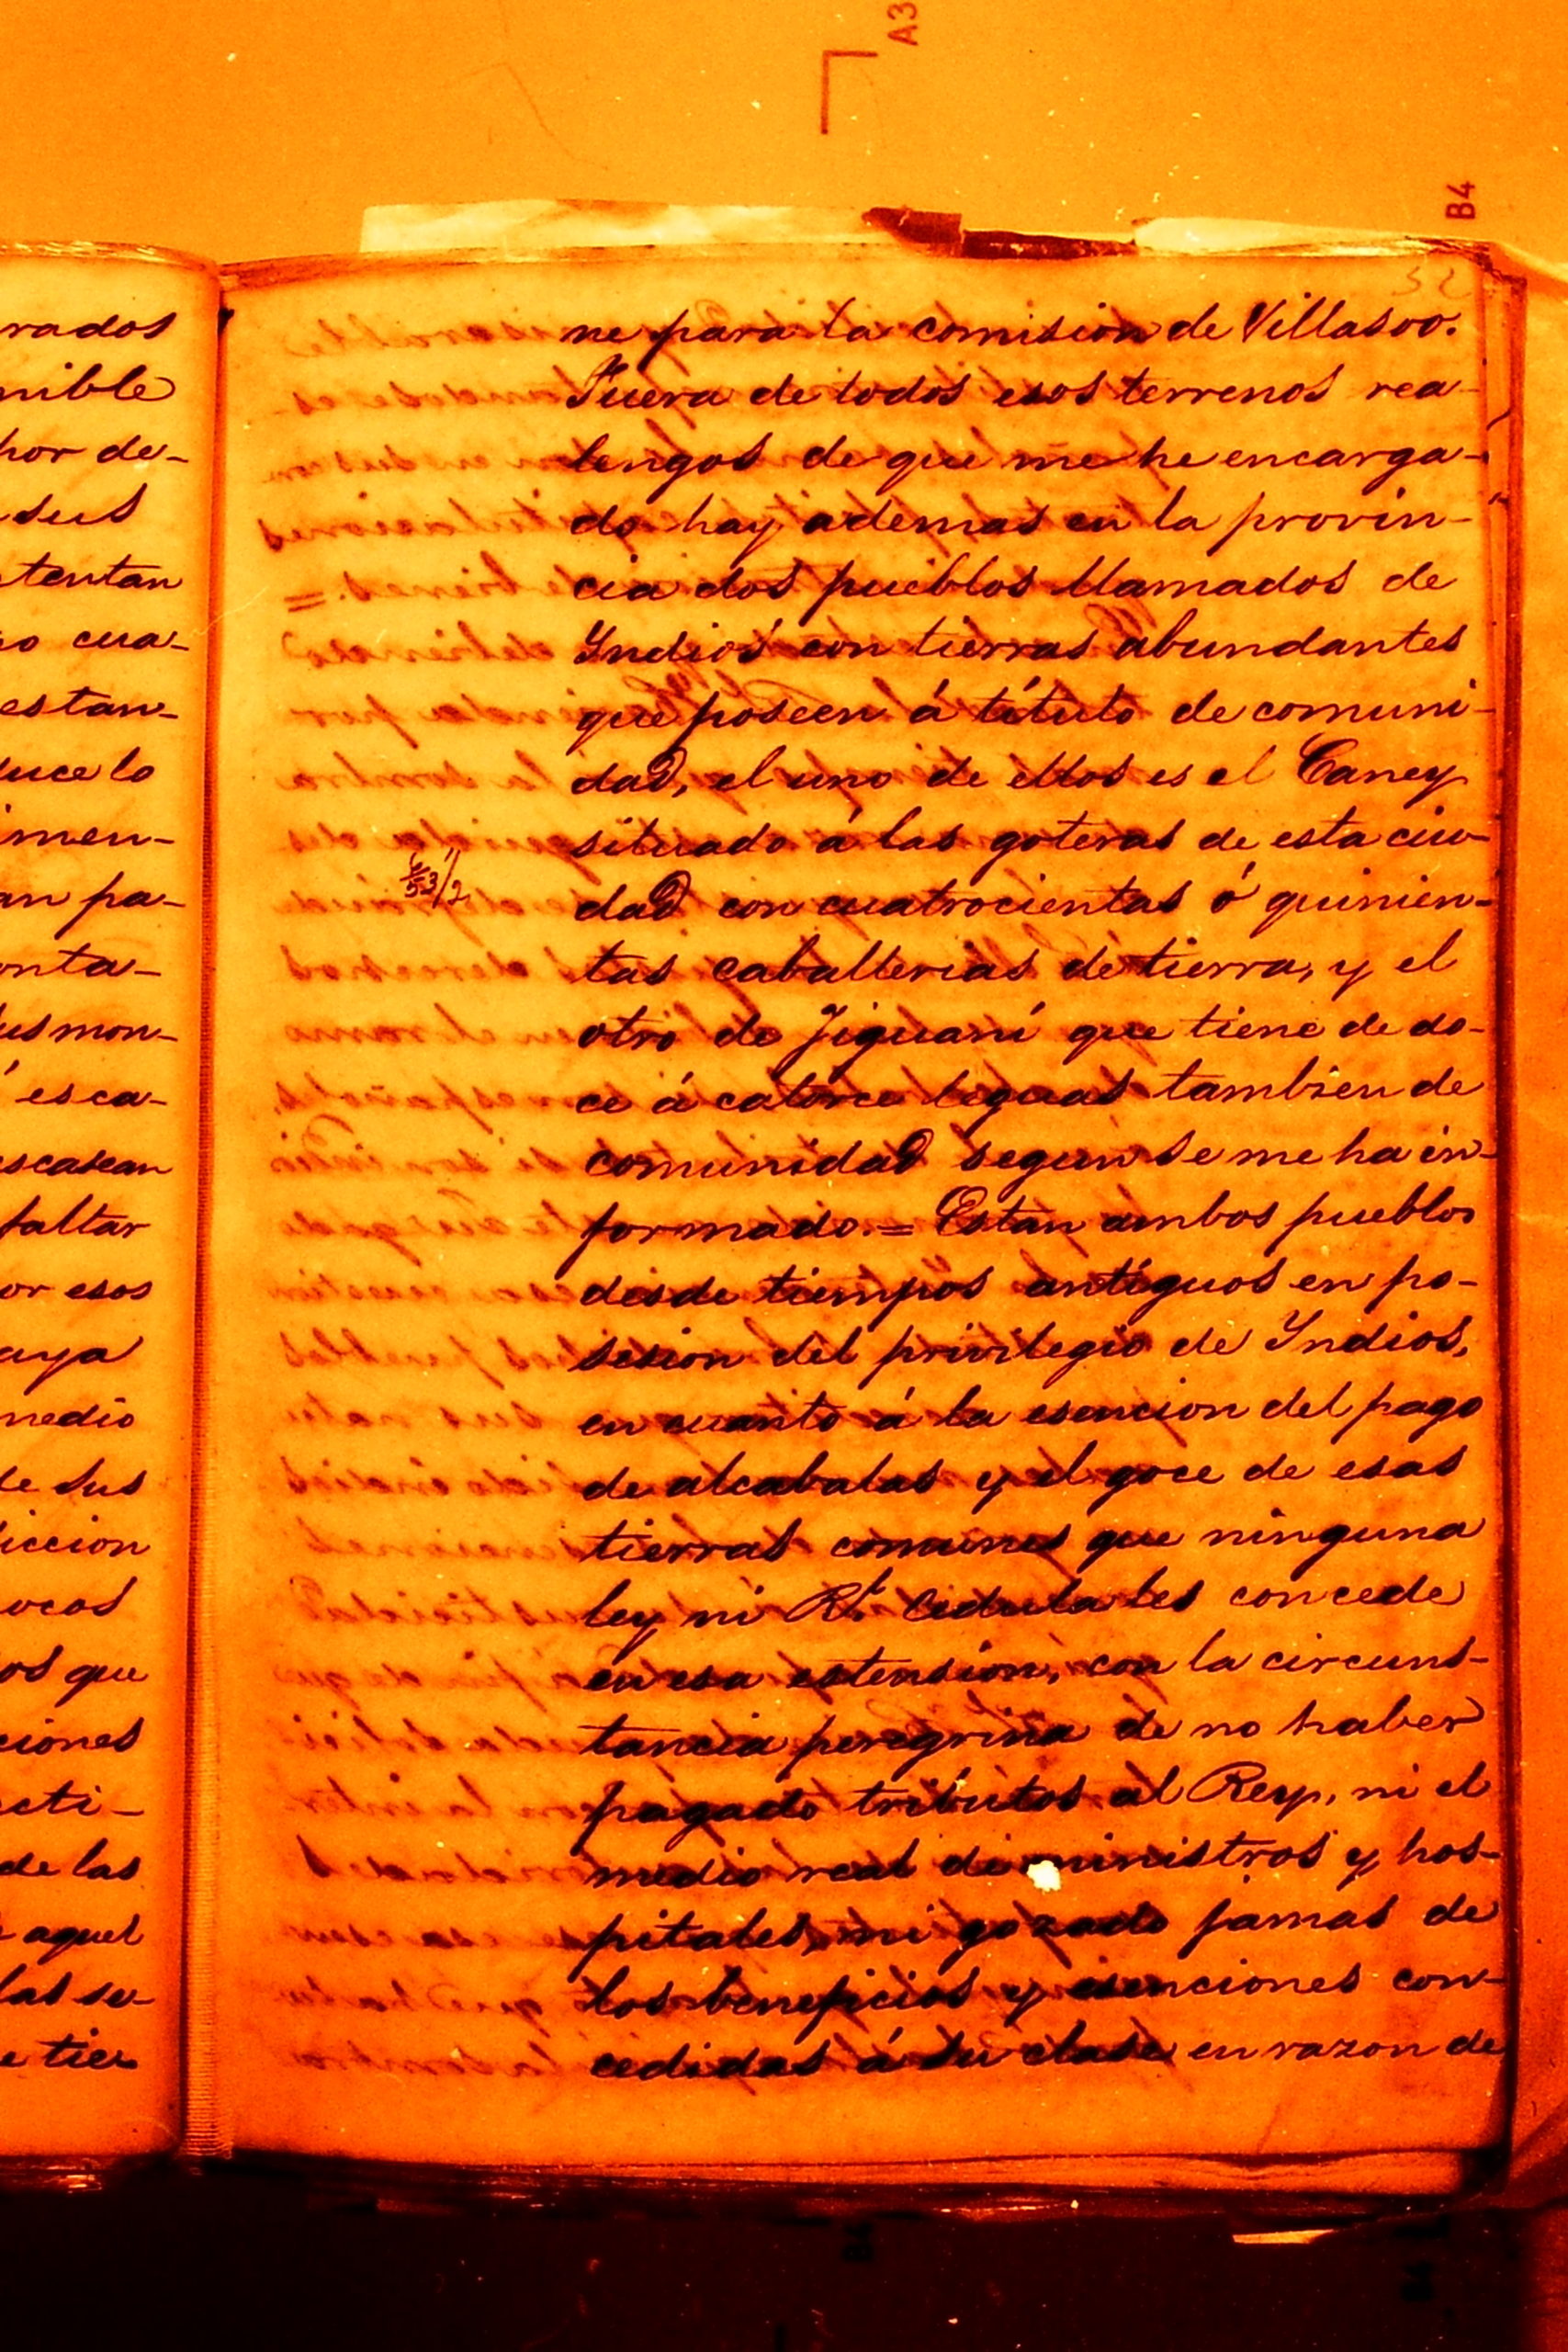 A3
B4
52
rados
nible
por de-
sus
tentan
so cua-
estan-
duce lo
imen-
an pa-
onta-
sus mon-
esca-
escasean
faltar
or esos
aya
medio
de sus
diccion
ocos
os que
ciones
ecti-
de las
aquel
las su-
e tier
ne para la comision de Villasoo.
Fuera de todos esos terrenos rea-
lengos de que me he encarga-
do hay ademas en la provin-
cia dos pueblos llamados de
Yndios con tierras abundantes
que poseen á título de comuni-
dad, el uno de ellos es el Caney
situado á las goteras de esta ciu-
dad con cuatrocientas ó quinien-
tas caballerias de tierra, y el
otro de Jiguaní que tiene de do-
ce á catorce leguas tambien de
comunidad segun se me ha in-
formado. = Estan ambos pueblos
desde tiempos antíguos en po-
sesion del privilegio de Yndios,
en cuanto á la esencion del pago
de alcabalas y el goce de esas
tierras comunes que ninguna
ley ni Rl. Cedula les concede
en esa estension, con la circuns-
tancia peregrina de no haber
pagado tributos al Rey, ni el
medio real de ministros y hos-
pitales, ni gozado jamas de
los beneficios y esenciones con-
cedidas á su clase en razon de